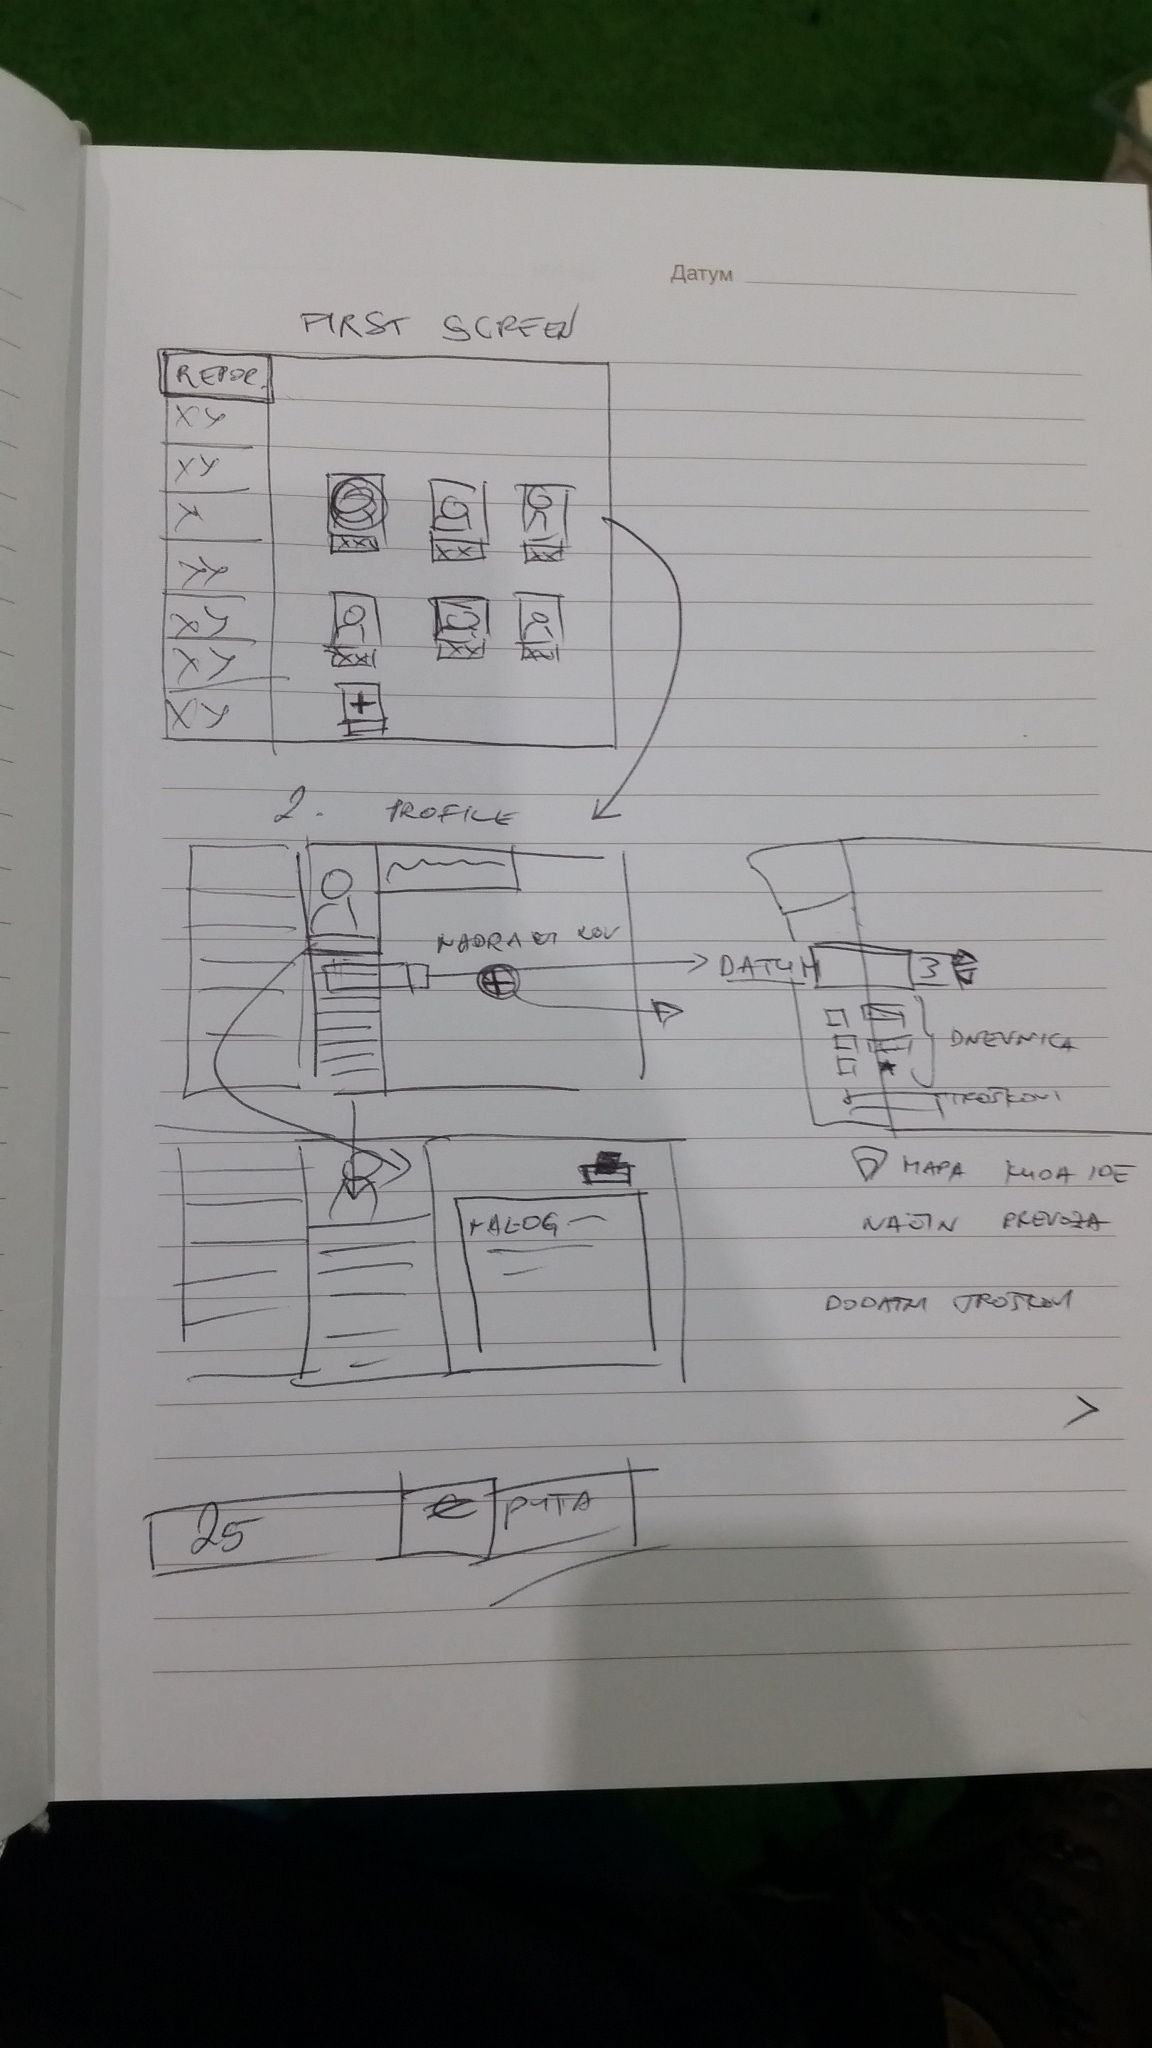 Датум
FIRST SCREEN
REPOR.
XY
XY
XY
XY
XY
+
2. PROFILE
DATUM 3
DNEVNICA
TROŠKOVI
NALOG
MAPA KUDA IDE
NAČIN PREVOZA
DODATNI TROŠKOVI
25 € PUTA